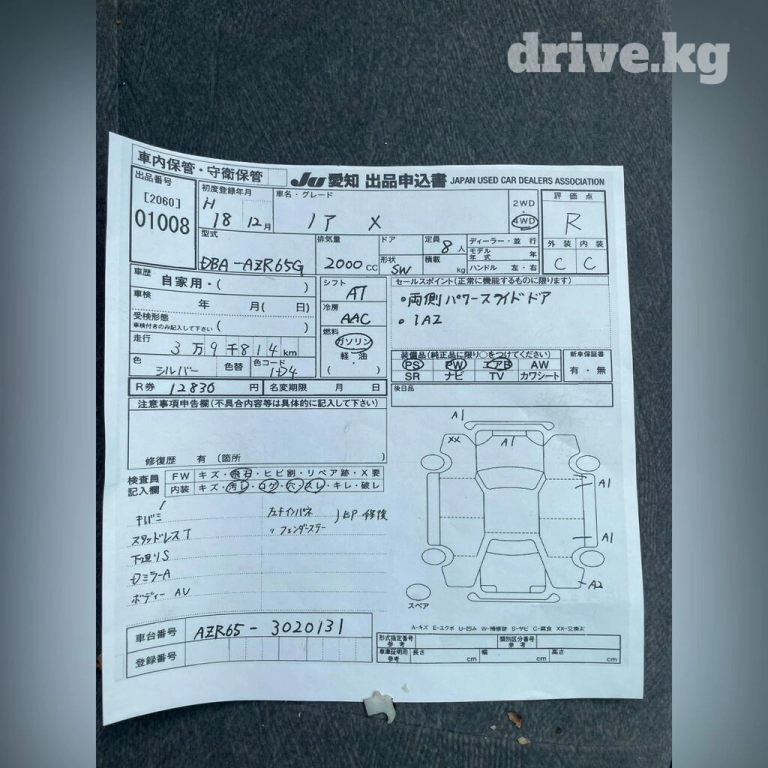 drive.kg
車内保管・守衛保管
JU 愛知 出品申込書 JAPAN USED CAR DEALERS ASSOCIATION
出品番号
[2060]
01008
初度登録年月
H
18 12月
車名・グレード
ノア X
2WD
4WD
評価点
R
外装 内装
C C
型式
DBA-AZR65G
排気量
2000 CC
ドア
形状
SW
定員
8人
積載
kg
ディーラー・並行
モデル年式 年
ハンドル 左・右
車歴 自家用・( )
車検 年 月( 日)
受検形態
車検付きのみ記入して下さい ( )
走行
3万9千814km
色
シルバー
色替
色コード
1D4
シフト
AT
冷房
AAC
燃料
ガソリン
軽・油
( )
セールスポイント(正常に機能するものに限ります)
・両側パワースライドドア
・1AZ
装備品(純正品に限り○をつけてください)
PS PW エアB AW
SR ナビ TV カワシート
新車保証書
有・無
R券 12830 円 名変期限 月 日
後日品
注意事項申告欄(不具合内容等は具体的に記入して下さい)
修復歴 有 (箇所 )
検査員記入欄
FW キズ・飛石・ヒビ割・リペア跡・X要
内装 キズ・汚れ・コゲ・穴・スレ・キレ・破レ
キバミ
スタッドレスT
下廻りS
DミラーA
ボディー AU
修復
A1
XX
A1
A1
A1
A2
スペア
A-キズ E-エクボ U-凹み W-補修跡 S-サビ C-腐食 XX-交換済
車台番号 AZR65-3020131
登録番号
形式指定番号
参考
類別区分番号
参考
車庫証明用
参考
長さ cm 幅 cm 高さ cm